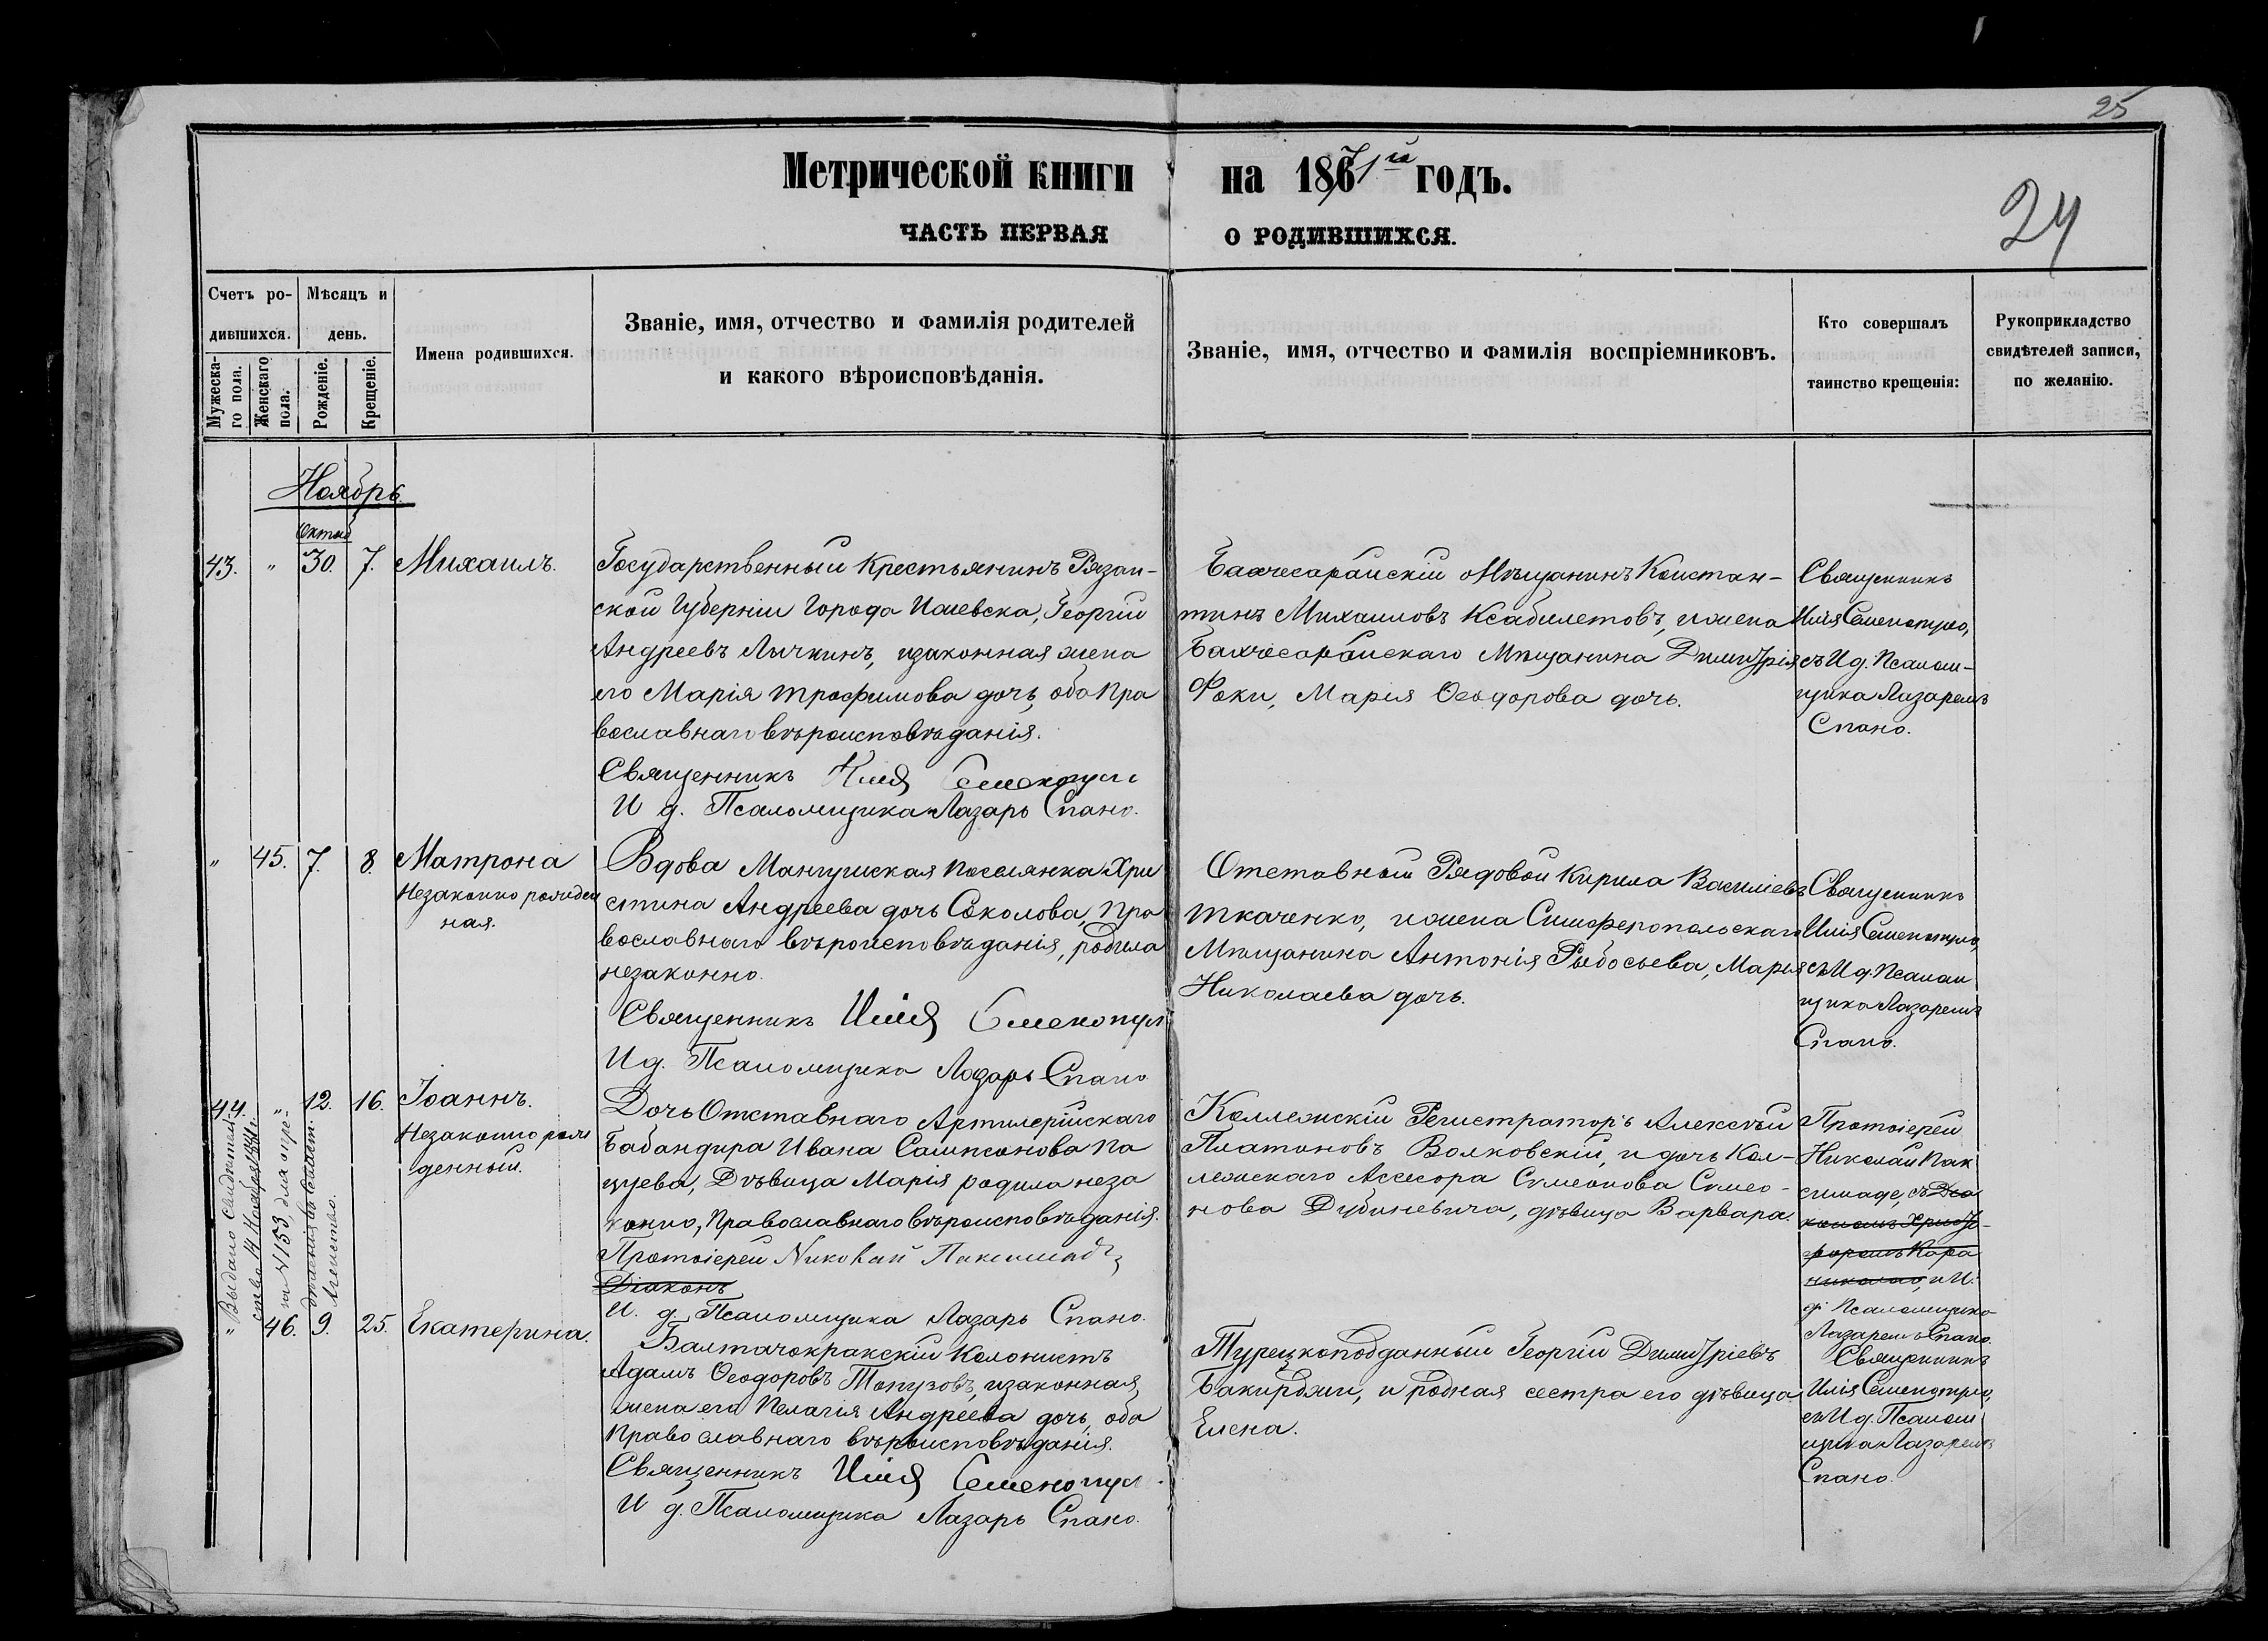 25
Метрической книги на 1871й годъ.
24
ЧАСТЬ ПЕРВАЯ О РОДИВШИХСЯ.
Счетъ родившихся.
Мужескаго пола.
Женскаго пола.
Мѣсяцъ и день.
Рожденіе.
Крещеніе.
Имена родившихся.
Званіе, имя, отчество и фамилія родителей
и какого вѣроисповѣданія.
Званіе, имя, отчество и фамилія воспріемниковъ.
Кто совершалъ
таинство крещенія:
Рукоприкладство
свидѣтелей записи,
по желанію.
Ноябрь
Октяб
43. " 30. 7. Михаилъ.
Государственный Крестьянинъ Рязан-
ской Губерніи Города Георгій
Андреевъ Лычкинъ, изаконная жена
его Марія Трофимова дочь, оба Пра
вославнаго вѣроисповѣданія.
Священникъ Илія Семенопуло
И д. Псаломщика Лазарь Спано.
Бахчесарайскій Мѣщанинъ Констан-
тинъ Михаиловъ Ксабилетовъ, ижена
Бахчесарайскаго Мѣщанина Димитрія
Фоки, Марія Ѳеодорова дочь.
Священникъ
Илія Семенопуло,
съ И д. Псалом-
щика Лазаремъ
Спано.
" 45. 7. 8. Матрона
Незаконно рожден
ная.
Вдова Мангушская поселянка Хри
стина Андреева дочь Соколова, Пра
вославнаго вѣроисповѣданія, родила
незаконно.
Священникъ Илія Семенопул
И д. Псаломщика Лазарь Спано
Отставный Рядовой Кирилла Василіевъ
Ткаченко, ижена Симферопольскаго
Мѣщанина Антонія Рыбосьева, Марія
Николаева дочь.
Священникъ
Илія Семенопуло,
съ И д. Псалом
щика Лазаремъ
Спано.
44. " 12. 16. Іоаннъ.
Незаконно рож
денный.
Выдано Свидѣтель-
ство 14 Ноября
за № 153, для опре-
дѣленія въ
Агентство.
Дочь Отставнаго Артилерійскаго
Бабандира Ивана Сампсонова Па
зуева, Дѣвица Марія родила неза
конно, Православнаго вѣроисповѣданія.
Протоіерей Николай Паксимади
Діаконъ
И. д. Псаломщика Лазарь Спано.
Коллежскій Регистраторъ Алексѣй
Платоновъ Волковскій, и дочь Кол-
лежскаго Ассесора Симеонова Симео-
нова Дубиневича, дѣвица Варвара.
Протоіерей
Николай Пак
симаде, съ Діа
кономъ Христо-
форомъ Кара
николао, и И.
д. Псаломщика
Лазаремъ Спано.
" 46. 9. 25. Екатерина.
Балтачокракскій Колонистъ
Адамъ Ѳеодоровъ Топузовъ, изаконная
жена его Пелагія Андреева дочь, оба
Православнаго вѣроисповѣданія.
Священникъ Илія Семенопул
И д. Псаломщика Лазарь Спано.
Турецкоподданный Георгій Димитріевъ
Бакирджи, и родная сестра его дѣвица
Елена.
Священникъ
Илія Семенопуло,
съ И д. Псалом
щика Лазаремъ
Спано.